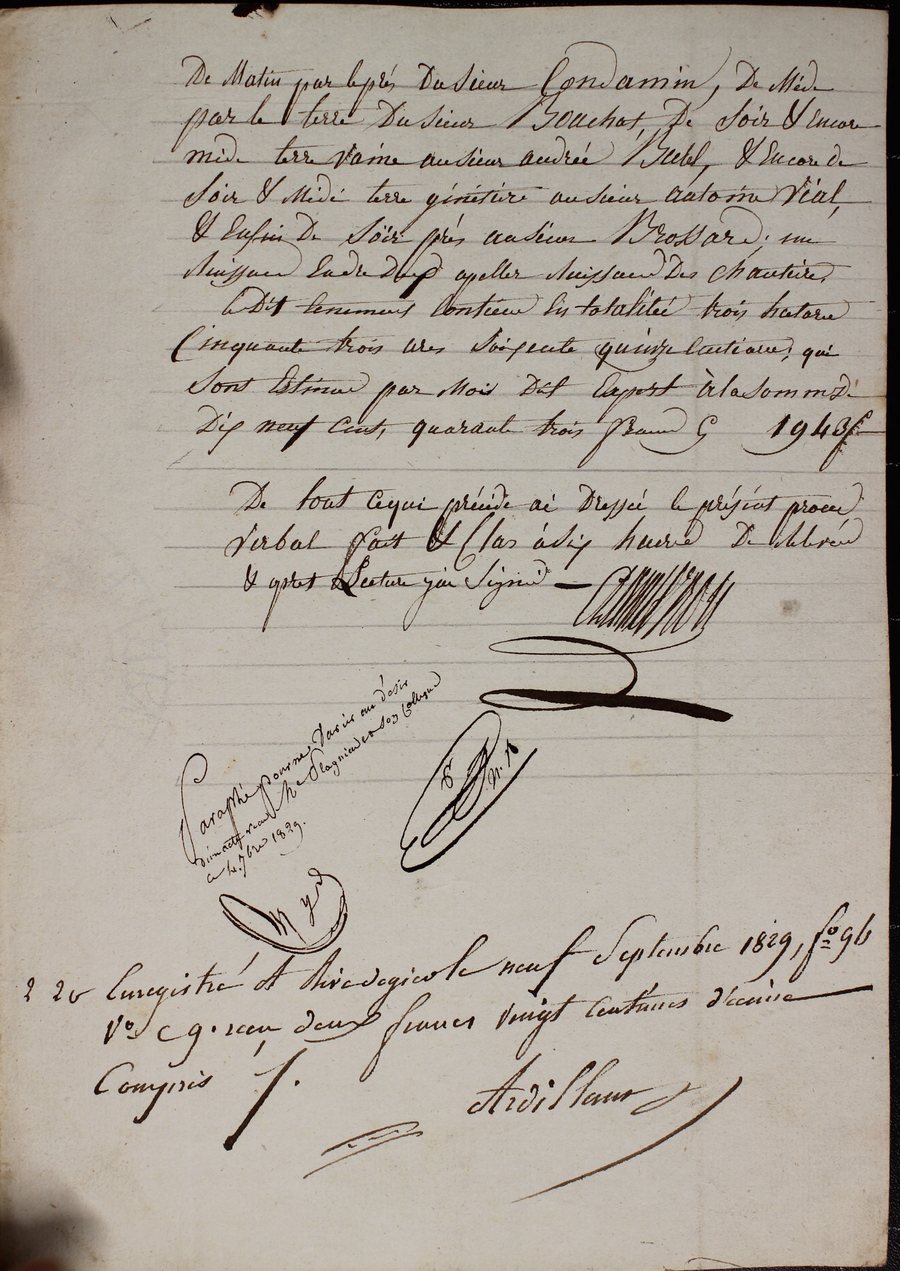 De Matin par le prés Du sieur Condamin, De Mède
par le terre Du sieur Bouchas, De soir & encore
mede terre vaine au sieur andrée Babel, & Encore de
soir & Midi terre génétire au sieur antoine Vial,
& Enfin De Soir prés au sieur Brossard; un
Ruisseau Endre deux apeller Ruisseau Des Chantire,
Le Dit tenement Contien En totalitée trois hectare
Cinquante trois ares soixente quinze Centiare; qui
sont Estimé par Moi Dit Expert à la somme De
Dix neuf Cent, quarante trois franc Ç 1943f
De tout ce qui précède ai Dressée le présent procé
verbal fait & Clos à dix heure De Relevée
& aprés Lecture j'ai Signé
Paraphé pour ne varier au désir
d'un acte reçu Me Plagniard et Son Collègue
ce 4 7bre 1829.
Enregistré à Rive de gier le neuf Septembre 1829, fo 96
Vo C 9. reçu deux francs vingt Centimes décime
Compris
2 20
Ardillaux